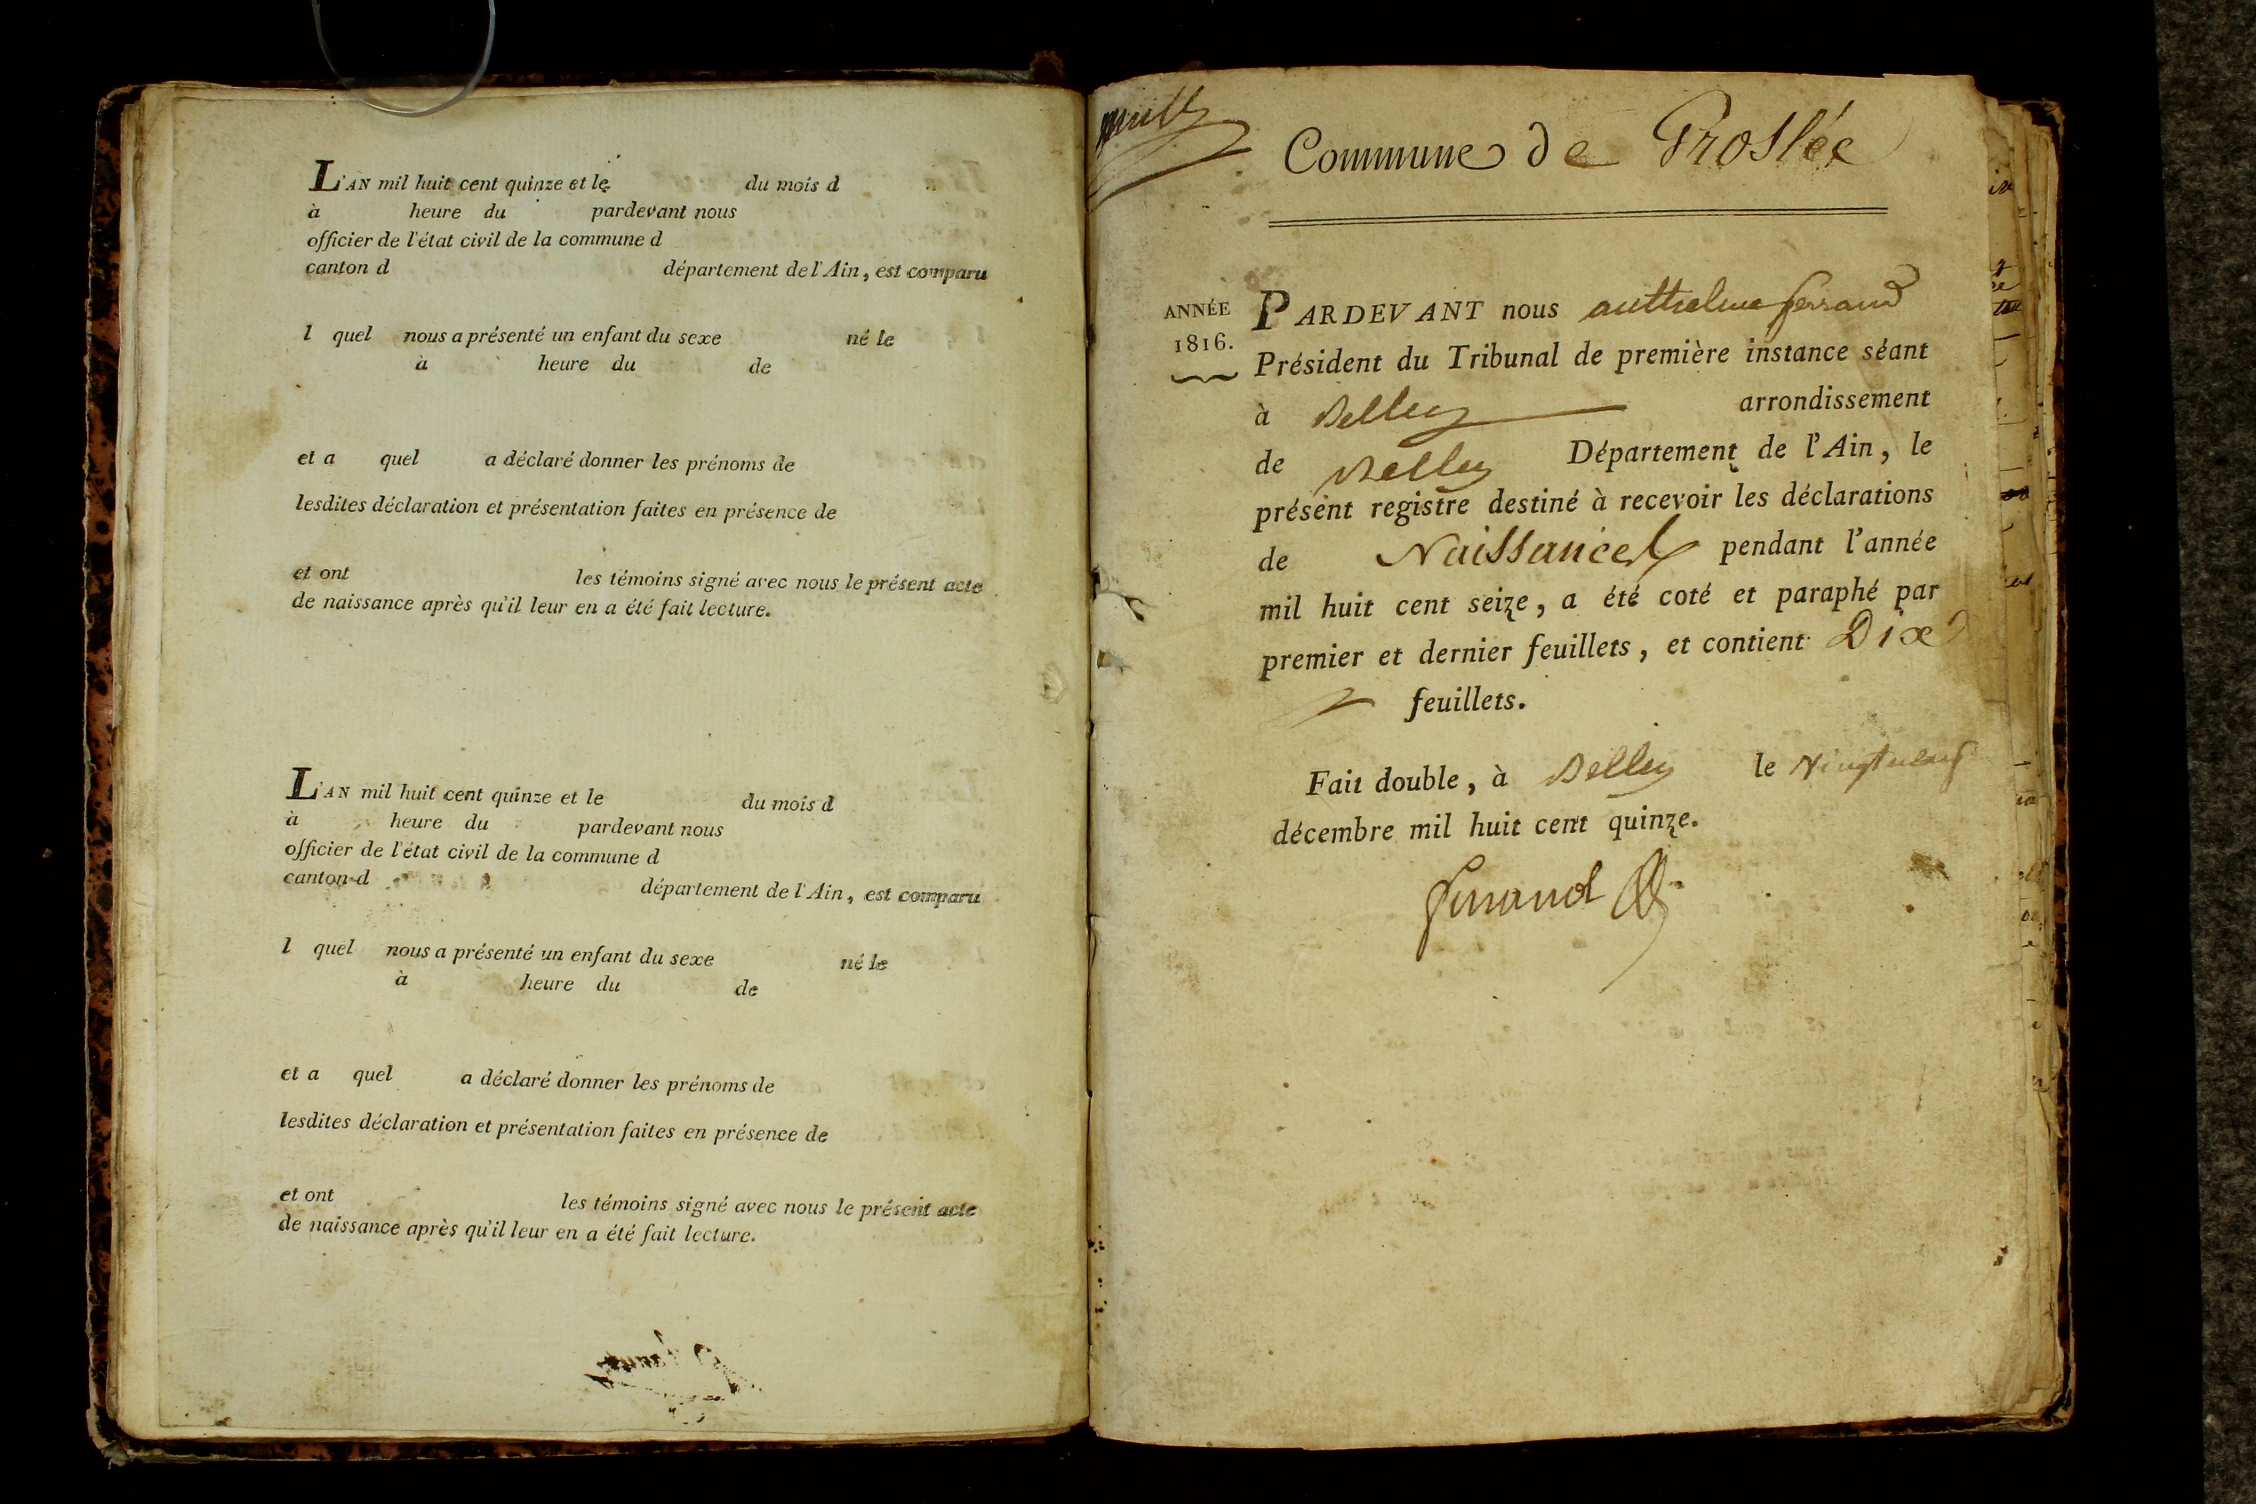 L'AN mil huit cent quinze et le du mois d
à heure du pardevant nous
officier de l'état civil de la commune d
canton d département de l'Ain, est comparu
l quel nous a présenté un enfant du sexe né le
à heure du de
et a quel a déclaré donner les prénoms de
lesdites déclaration et présentation faites en présence de
et ont les témoins signé avec nous le présent acte
de naissance après qu'il leur en a été fait lecture.
L'AN mil huit cent quinze et le du mois d
à heure du pardevant nous
officier de l'état civil de la commune d
canton d département de l'Ain, est comparu
l quel nous a présenté un enfant du sexe né le
à heure du de
et a quel a déclaré donner les prénoms de
lesdites déclaration et présentation faites en présence de
et ont les témoins signé avec nous le présent acte
de naissance après qu'il leur en a été fait lecture.
Commune de Groslée
ANNÉE
1816.
PARDEVANT nous anthelme ferrand
Président du Tribunal de première instance séant
à Belley arrondissement
de Belley Département de l'Ain, le
présent registre destiné à recevoir les déclarations
de Naissances pendant l'année
mil huit cent seize, a été coté et paraphé par
premier et dernier feuillets, et contient Dix
feuillets.
Fait double, à Belley le Vingt neuf
décembre mil huit cent quinze.
ferrand